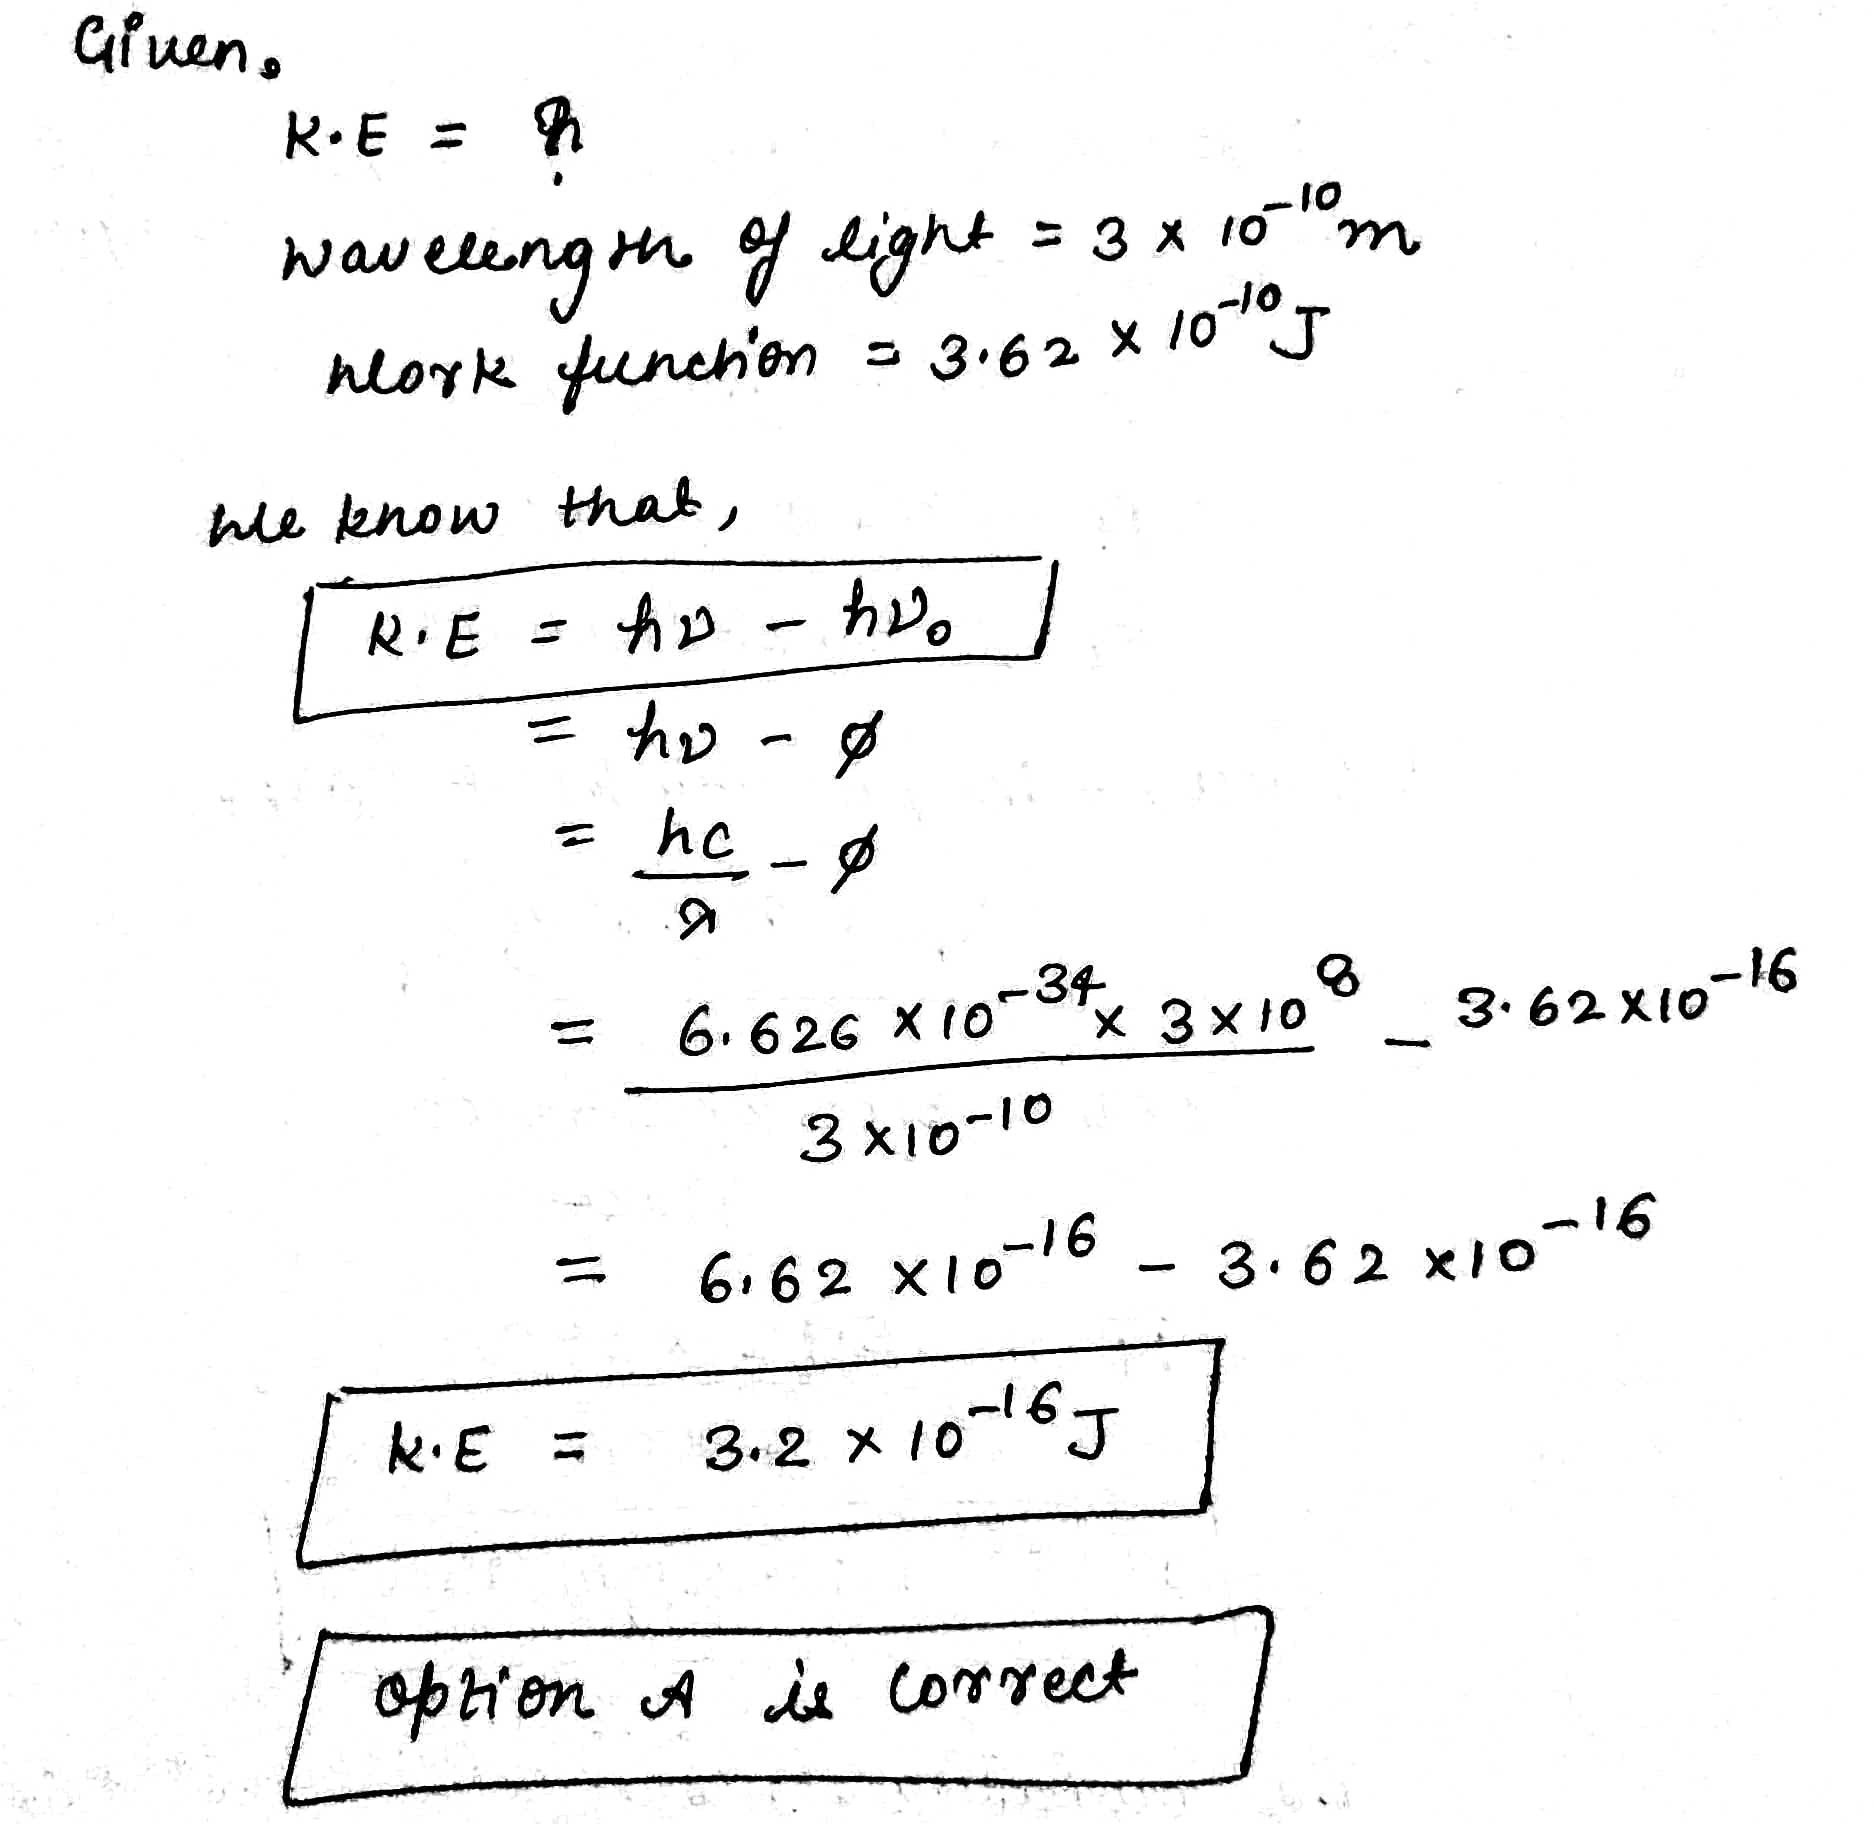 Given,
K.E = ?
wavelength of light = 3 x 10⁻¹⁰ m
Work function = 3.62 x 10⁻¹⁰ J
We know that,
K.E = hν - hν₀
= hν - ϕ
= hc/λ - ϕ
= 6.626 x 10⁻³⁴ x 3 x 10⁸ / 3 x 10⁻¹⁰ - 3.62 x 10⁻¹⁶
= 6.62 x 10⁻¹⁶ - 3.62 x 10⁻¹⁶
K.E = 3.2 x 10⁻¹⁶ J
option A is correct